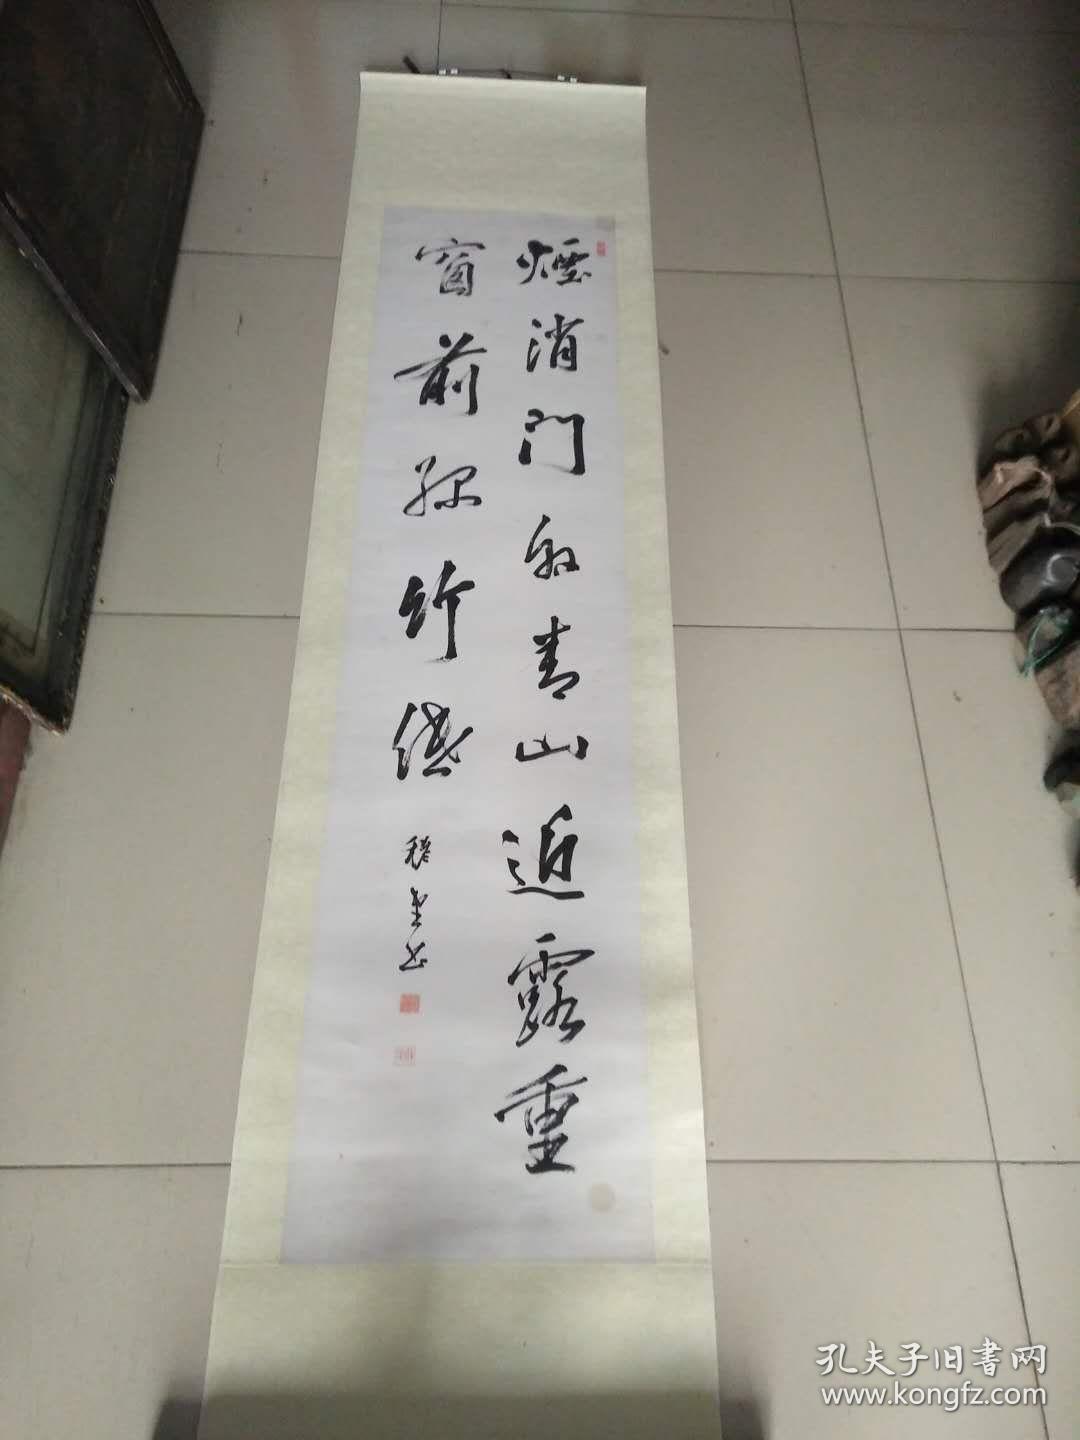 煙消門外青山近露重
窗前綠竹低
堂書
孔夫子旧書网
www.kongfz.com